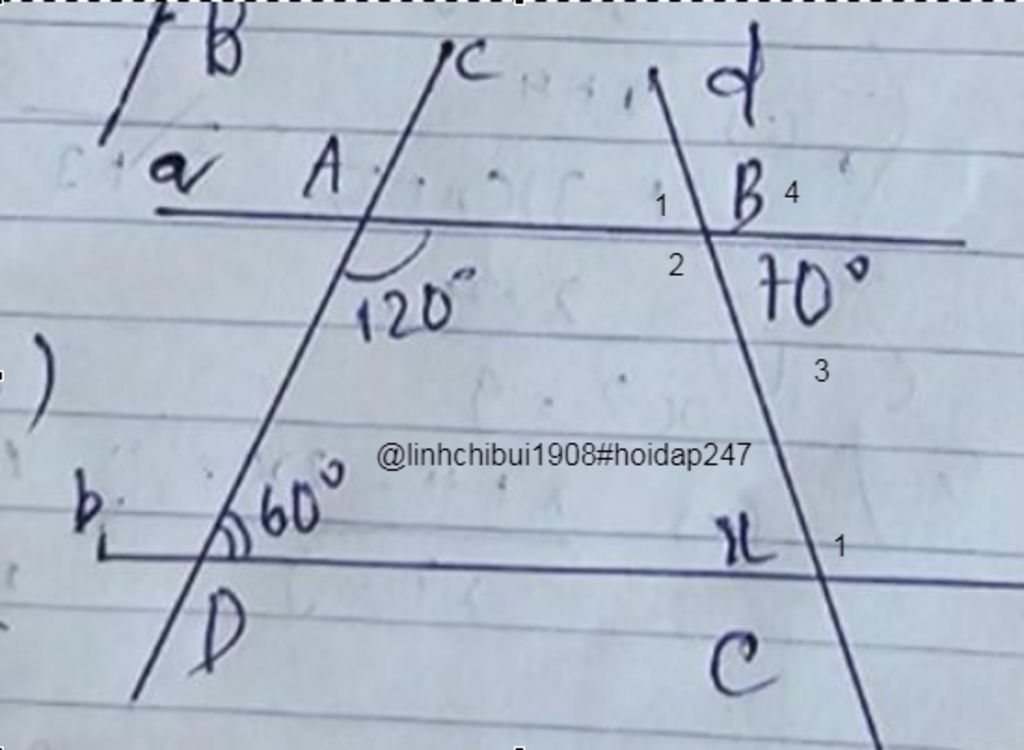 B
c
d
a
A
B
4
1
2
70°
120°
3
)
@linhchibui1908#hoidap247
b
60°
x
1
D
C